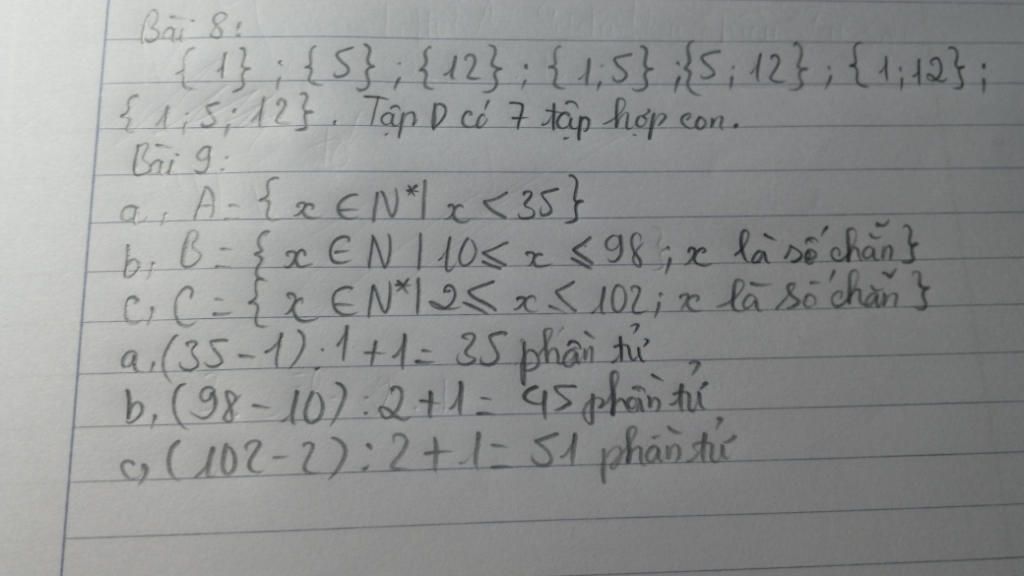 Bài 8:
{1} ; {5} ; {12} ; {1;5} ; {5;12} ; {1;12} ;
{1;5;12}. Tập D có 7 tập hợp con.
Bài 9:
a, A = {x ∈ N* | x < 35}
b, B = {x ∈ N | 10 ≤ x ≤ 98 ; x là số chẵn}
c, C = {x ∈ N* | 2 ≤ x ≤ 102 ; x là số chẵn}
a, (35 - 1) : 1 + 1 = 35 phần tử
b, (98 - 10) : 2 + 1 = 45 phần tử
c, (102 - 2) : 2 + 1 = 51 phần tử